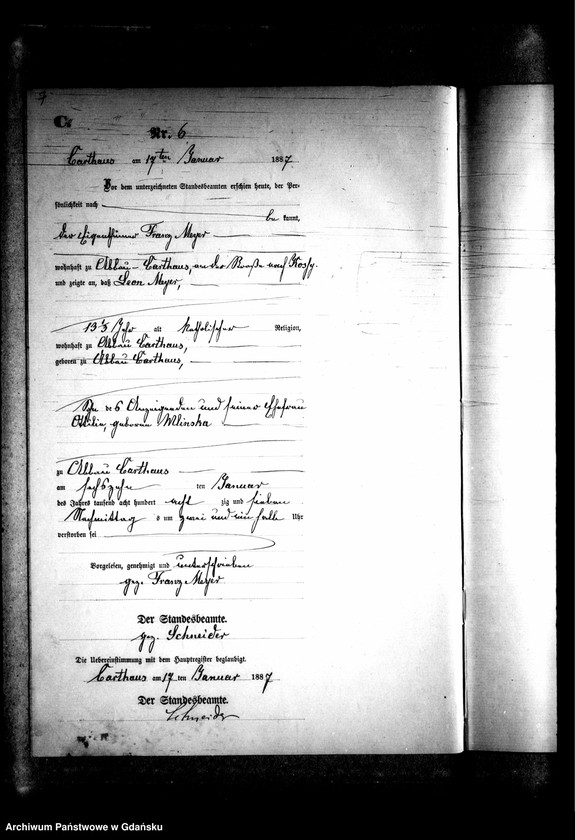 7
C.
Nr. 6
Carthaus am 17ten Januar 1887
Vor dem unterzeichneten Standesbeamten erschien heute, der Per-
sönlichkeit nach
be kannt,
der Eigenthümer Franz Meyer
wohnhaft zu Abbau-Carthaus, an der Straße nach Kossy
und zeigte an, daß Leon Meyer,
Jahr alt katholischer Religion,
wohnhaft zu Abbau Carthaus,
geboren zu Abbau Carthaus,
Sohn des Anzeigenden und seiner Ehefrau
Ottilie, geborene Mlinska
zu Abbau Carthaus
am sechszehn ten Januar
des Jahres tausend acht hundert acht zig und sieben
Nachmittag s um zwei und ein halb Uhr
verstorben sei
Vorgelesen, genehmigt und unterschrieben
gez. Franz Meyer
Der Standesbeamte.
gez. Schneider
Die Uebereinstimmung mit dem Hauptregister beglaubigt.
Carthaus am 17 ten Januar 1887
Der Standesbeamte.
Schneider
Archiwum Państwowe w Gdańsku